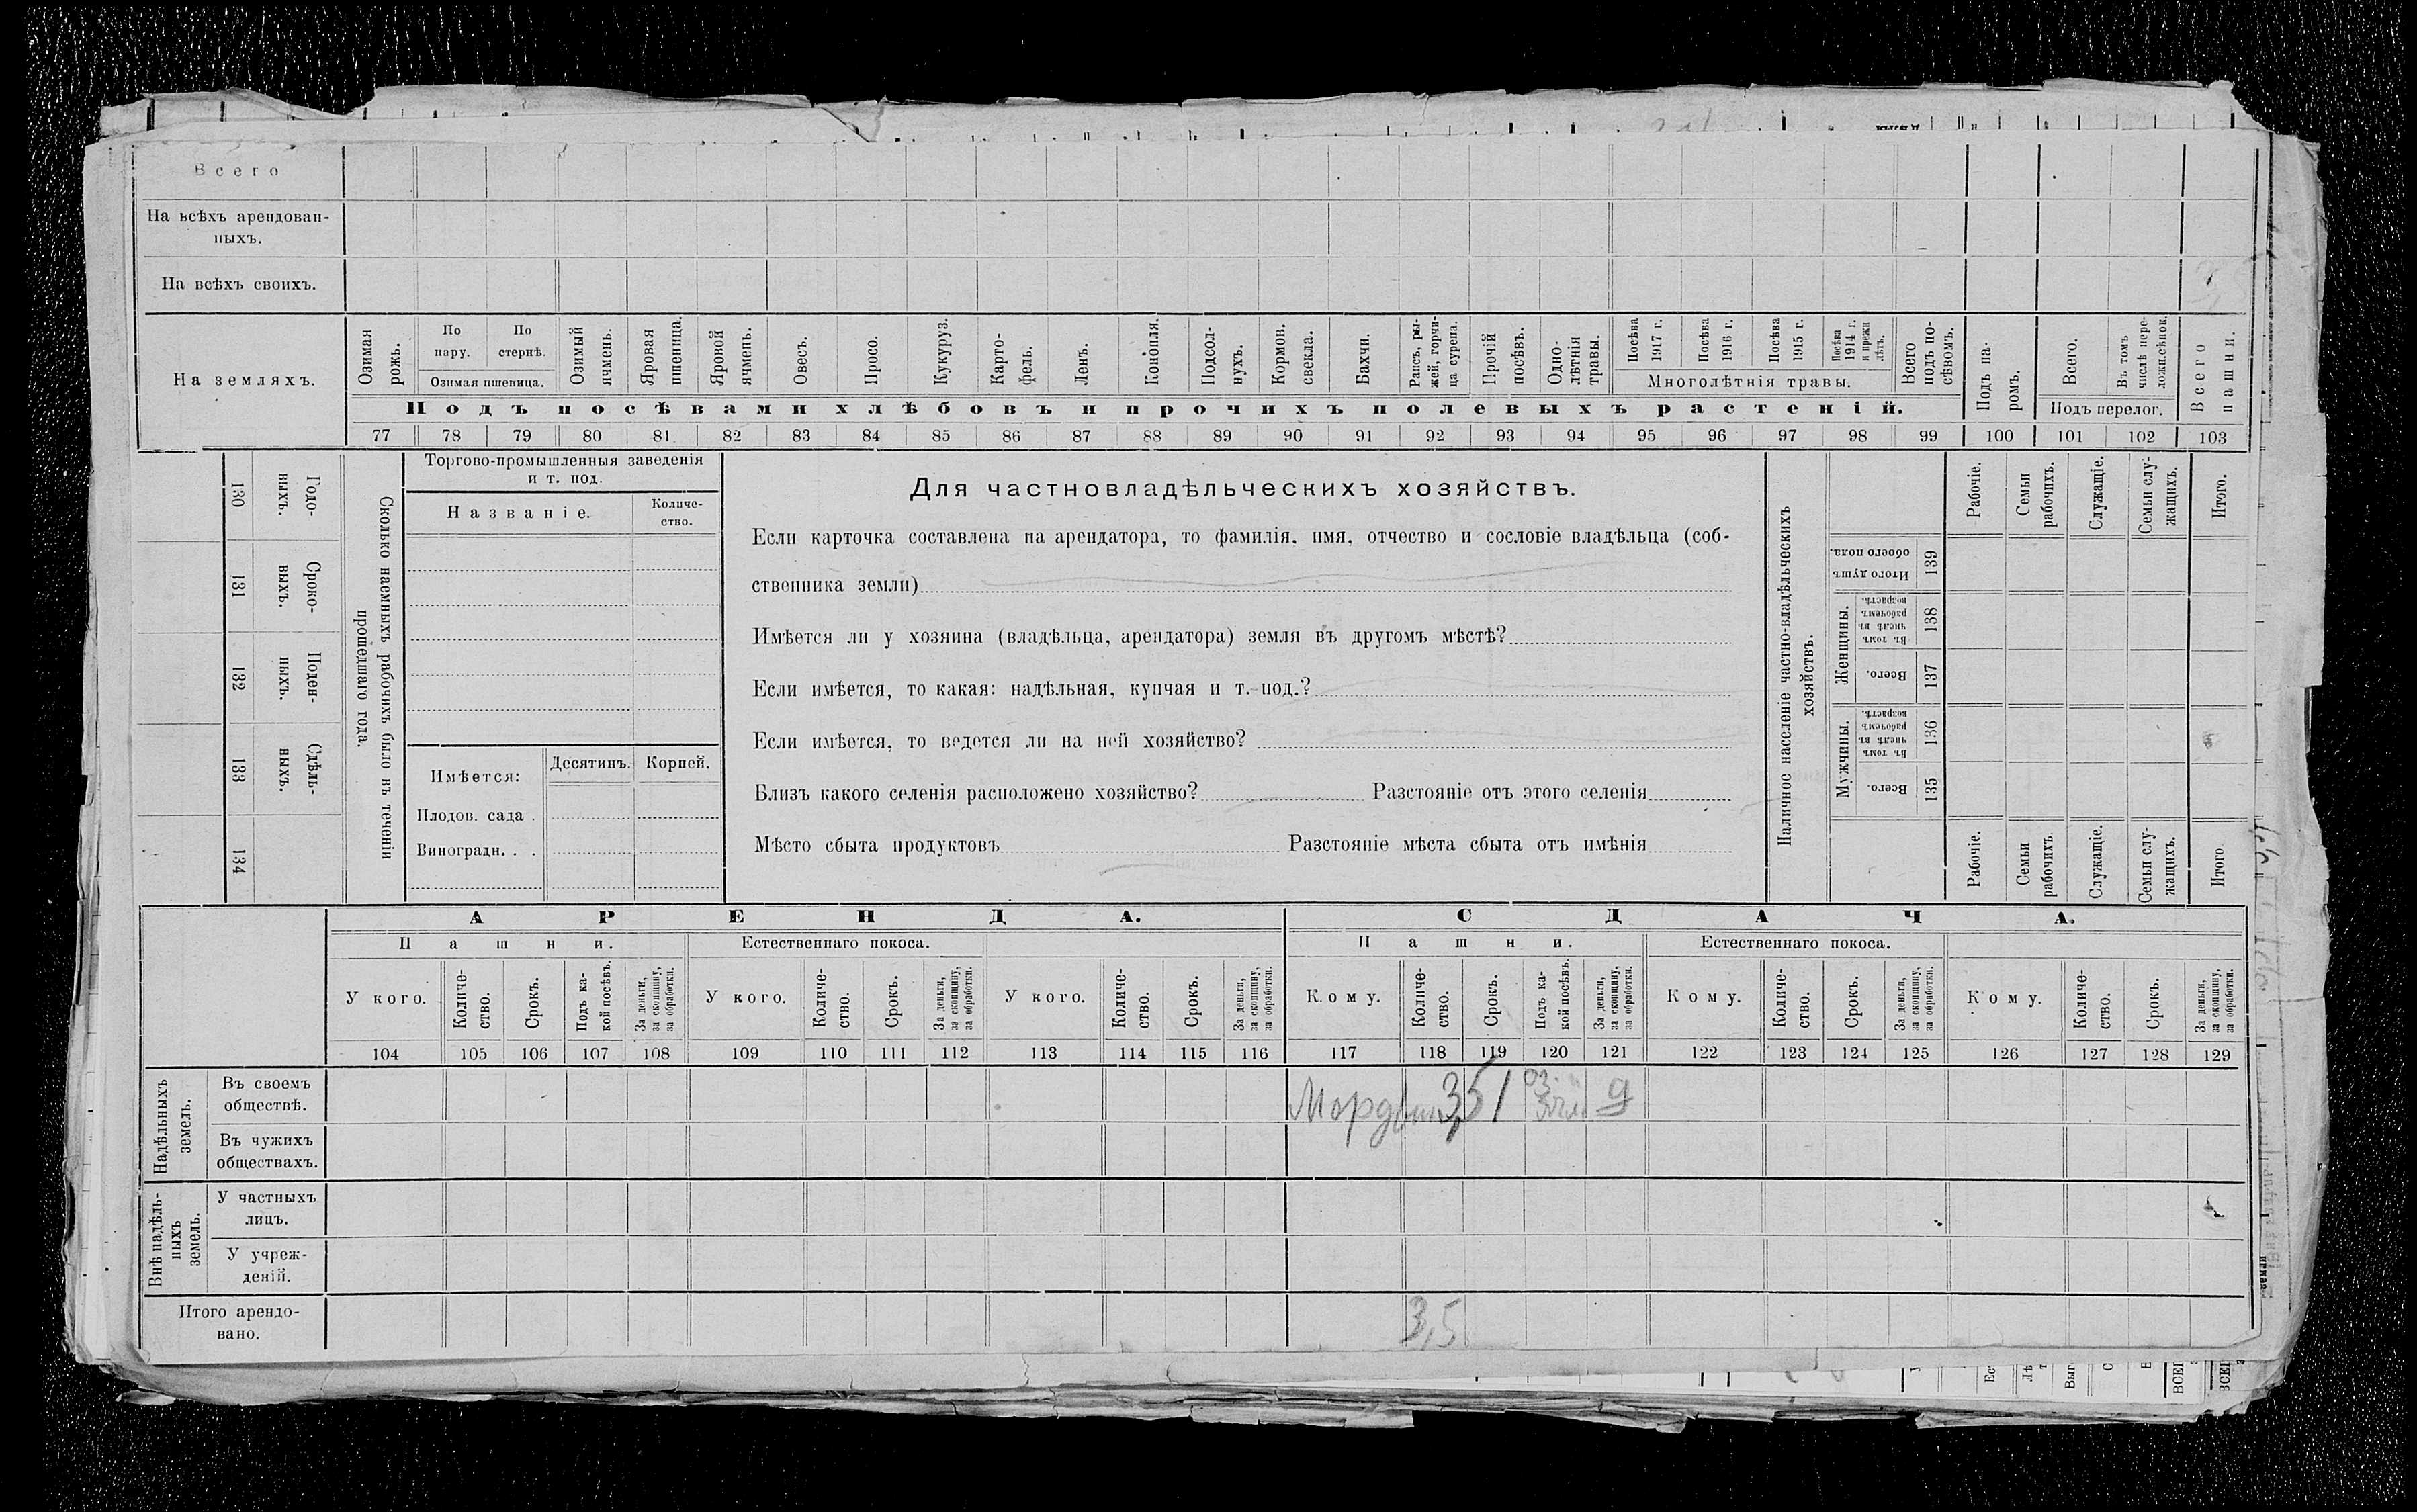 Всего
На всѣхъ арендован-
ныхъ.
На всѣхъ своихъ.
На земляхъ.
Озимая рожь.
По пару.
По стернѣ.
Озимая пшеница.
Озимый ячмень.
Яровая пшеница.
Яровой ячмень.
Овесъ.
Просо.
Кукуруз.
Карто-
фель.
Ленъ.
Конопля.
Подсол-
нухъ.
Кормов.
свекла.
Бахчи.
Рапсъ, ры-
жей, горчи-
ца сурепа.
Прочій
посѣвъ.
Одно-
лѣтнія
травы.
Посѣва
1917 г.
Посѣва
1916 г.
Посѣва
1915 г.
Посѣва
1914 г.
и прежн
лѣтъ.
Многолѣтнія травы.
Всего
подъ по-
сѣвомъ.
Подъ посѣвами хлѣбовъ и прочихъ полевыхъ растеній.
Подъ па-
ромъ.
Всего.
Въ томъ
числѣ пере-
ложн.сѣнок.
Подъ перелог.
Всего
пашни.
77 78 79 80 81 82 83 84 85 86 87 88 89 90 91 92 93 94 95 96 97 98 99 100 101 102 103
130 Годо-
выхъ.
131 Сроко-
выхъ.
132 Поден-
ныхъ.
133 Сдѣль-
ныхъ.
134
Сколько наемныхъ рабочихъ было въ теченіи
прошедшаго года.
Торгово-промышленныя заведенія
и т. под.
Названіе.
Количе-
ство.
Имѣется:
Десятинъ.
Корней.
Плодов. сада .
Виноградн. . .
Для частновладѣльческихъ хозяйствъ.
Если карточка составлена на арендатора, то фамилія, имя, отчество и сословіе владѣльца (соб-
ственника земли)
Имѣется ли у хозяина (владѣльца, арендатора) земля въ другомъ мѣстѣ?
Если имѣется, то какая: надѣльная, купчая и т. под.?
Если имѣется, то ведется ли на ней хозяйство?
Близъ какого селенія расположено хозяйство? Разстояніе отъ этого селенія
Мѣсто сбыта продуктовъ Разстояніе мѣста сбыта отъ имѣнія
Наличное населеніе частно-владѣльческихъ
хозяйствъ.
Рабочіе.
Семьи
рабочихъ.
Служащіе.
Семьи слу-
жащихъ.
Итого.
Итого душъ
обоего пола.
139
Женщины.
Въ томъ
числѣ въ
рабочемъ
возрастѣ.
138
Всего.
137
Мужчины.
Въ томъ
числѣ въ
рабочемъ
возрастѣ.
136
Всего.
135
Рабочіе.
Семьи
рабочихъ.
Служащіе.
Семьи слу-
жащихъ.
Итого
АРЕНДА.
СДАЧА.
Пашни.
Естественнаго покоса.
Пашни.
Естественнаго покоса.
У кого.
Количе-
ство.
Срокъ.
Подъ ка-
кой посѣвъ.
За деньги,
за скопщину,
за обработки.
У кого.
Количе-
ство.
Срокъ.
За деньги,
за скопщину,
за обработки.
У кого.
Количе-
ство.
Срокъ.
За деньги,
за скопщину,
за обработки.
Кому.
Количе-
ство.
Срокъ.
Подъ ка-
кой посѣвъ.
За деньги,
за скопщину,
за обработки.
Кому.
Количе-
ство.
Срокъ.
За деньги,
за скопщину,
за обработки.
Кому.
Количе-
ство.
Срокъ.
За деньги,
за скопщину,
за обработки.
104 105 106 107 108 109 110 111 112 113 114 115 116 117 118 119 120 121 122 123 124 125 126 127 128 129
Надѣльныхъ
земель.
Въ своемъ
обществѣ.
3,5 1 оз. д
Въ чужихъ
обществахъ.
Внѣ надѣль-
ныхъ
земель.
У частныхъ
лицъ.
У учреж-
деній.
Итого арендо-
вано.
3,5